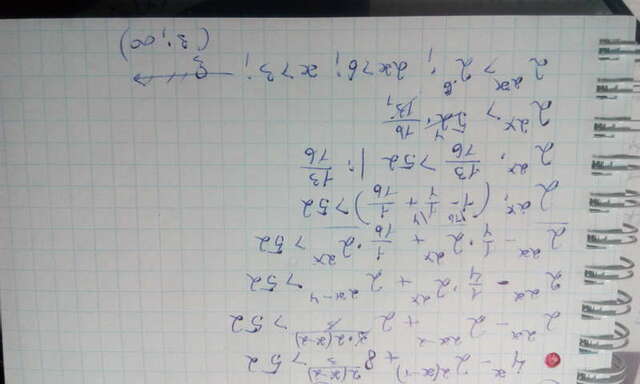 4^x - 2^{2(x-1)} + 8^{\frac{2(x-2)}{3}} > 52
2^{2x} - 2^{2x-2} + 2^{\frac{3·2(x-2)}{3}} > 52
2^{2x} - \frac{1}{4}·2^{2x} + 2^{2x-4} > 52
2^{2x} - \frac{1}{4}·2^{2x} + \frac{1}{16}·2^{2x} > 52
2^{2x}·(1 - \frac{1}{4} + \frac{1}{16}) > 52
2^{2x}·\frac{13}{16} > 52 |: \frac{13}{16}
2^{2x} > 52·\frac{16}{13}
2^{2x} > 2^6; 2x>6; x>3;
3
(3; ∞)